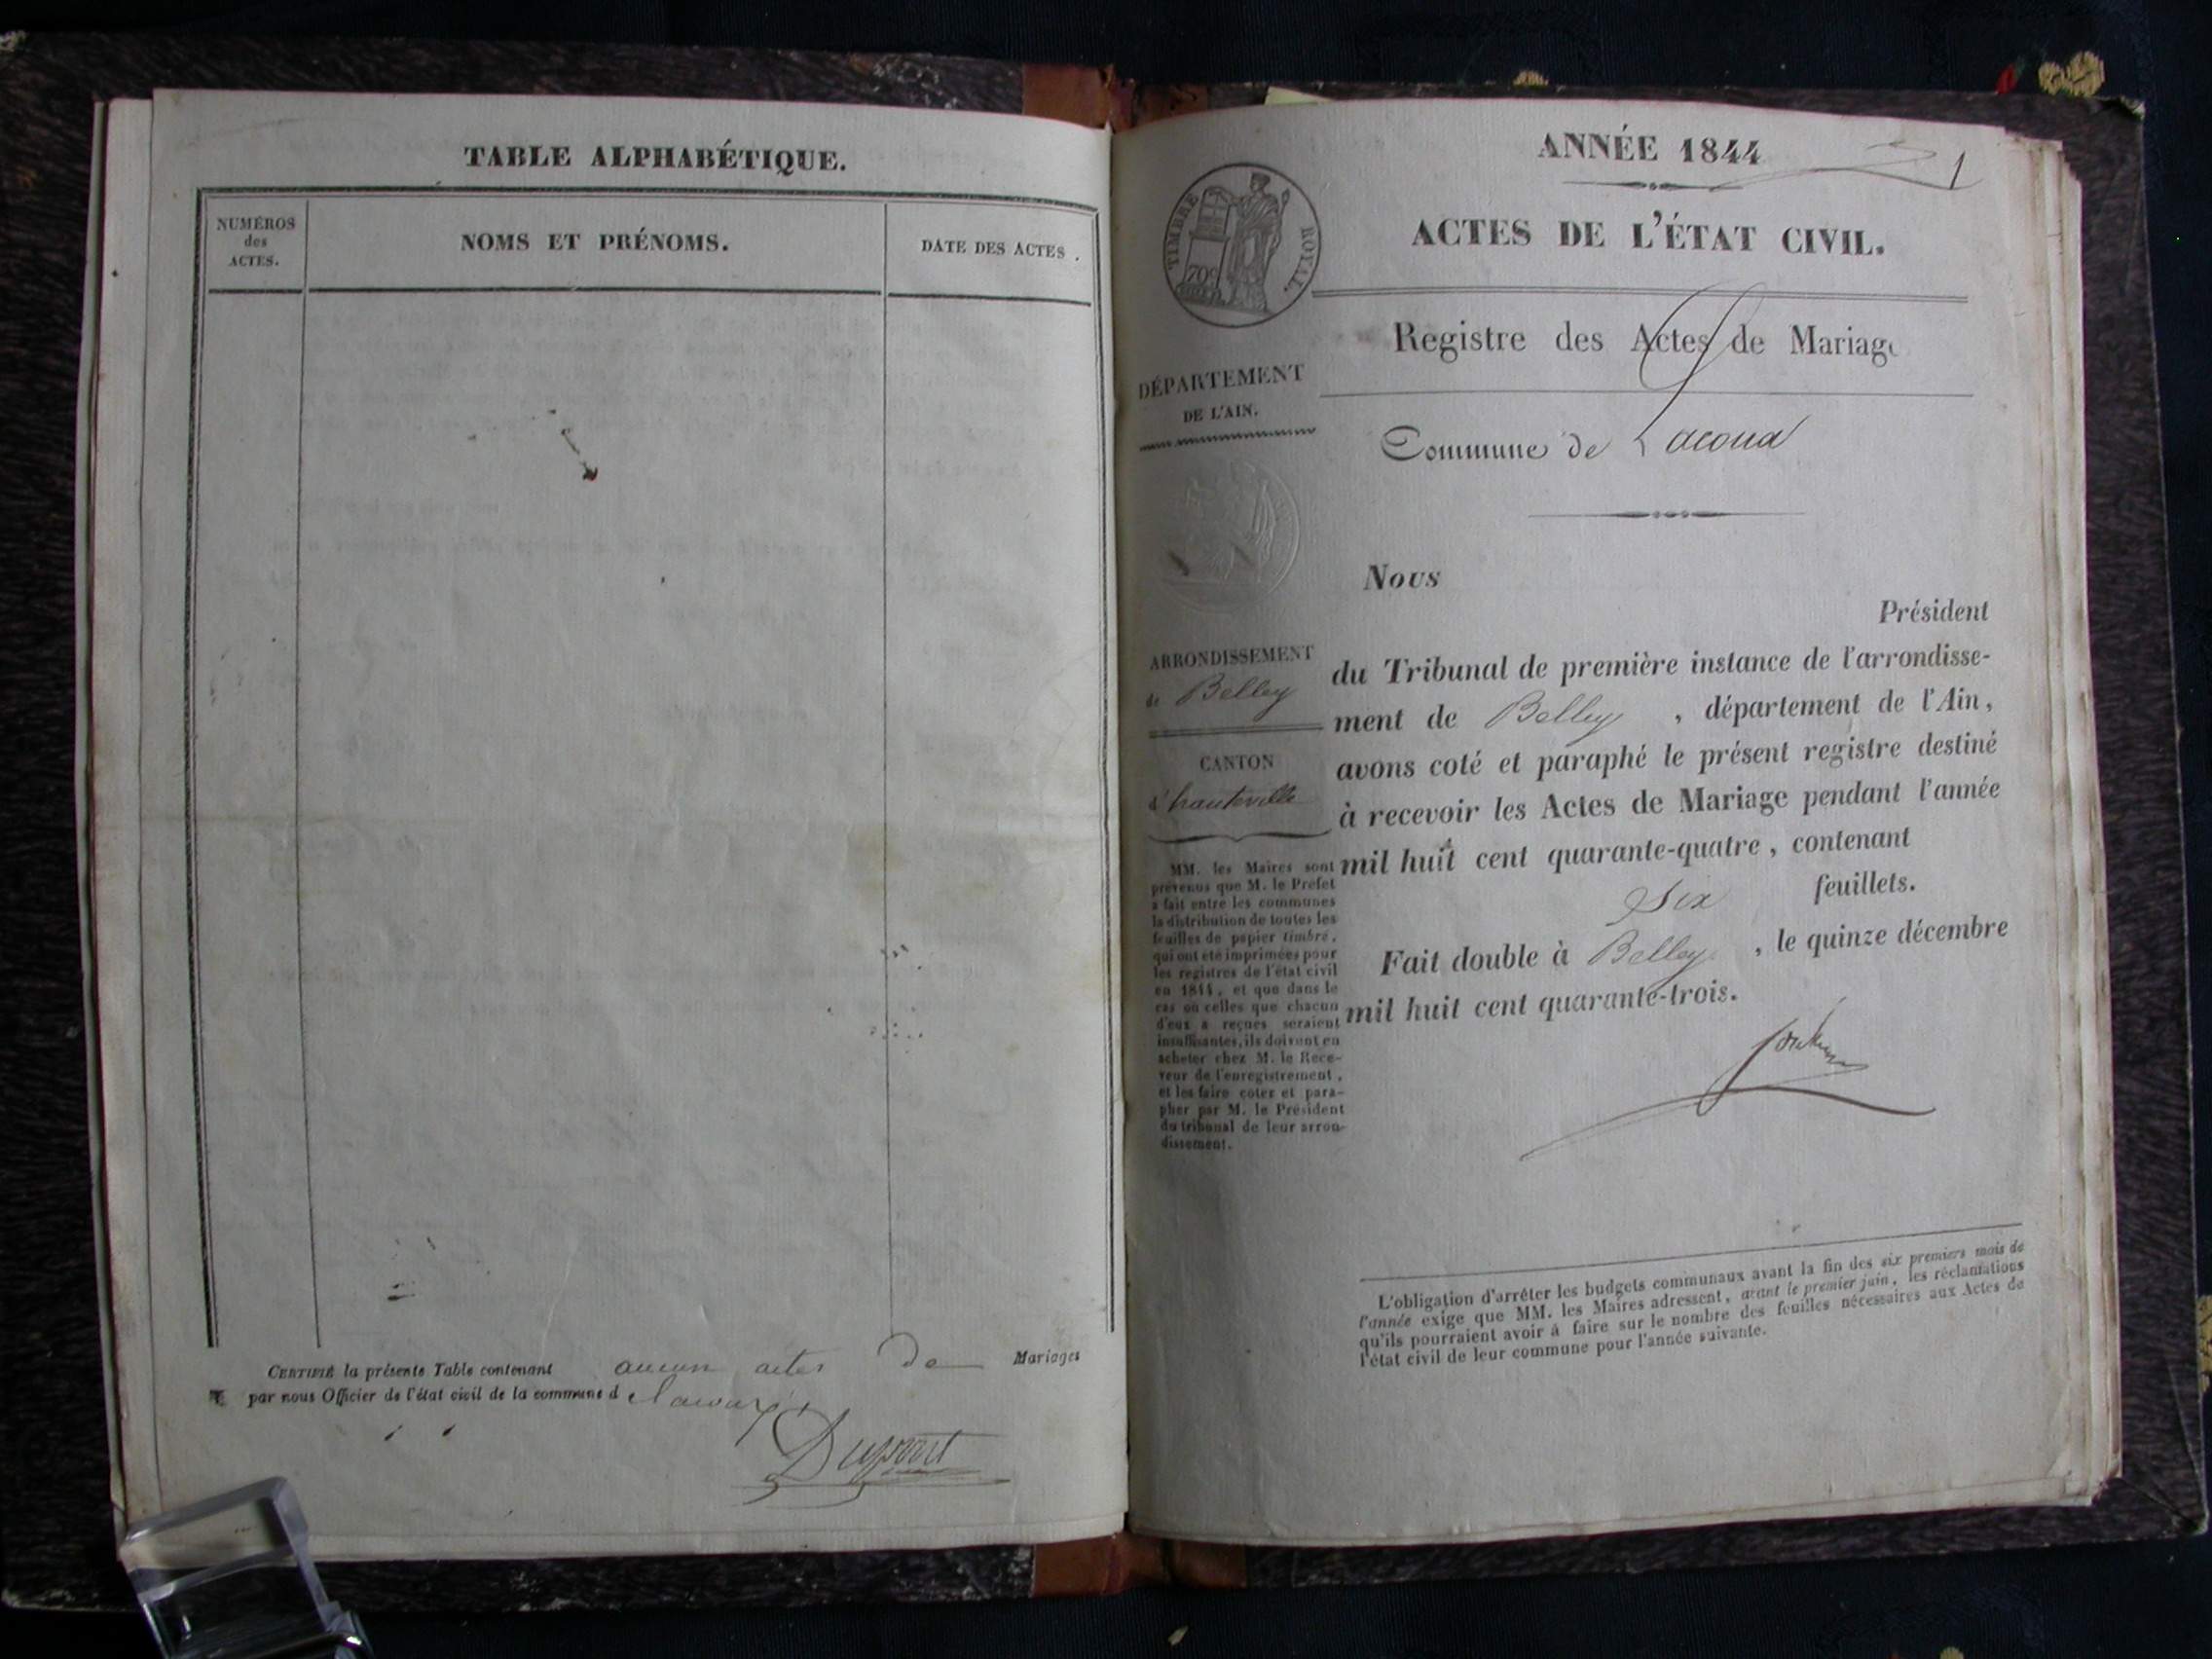 TABLE ALPHABÉTIQUE.
NUMÉROS
des
ACTES.
NOMS ET PRÉNOMS.
DATE DES ACTES.
CERTIFIÉ la présente Table contenant aucun actes de Mariages
par nous Officier de l'état civil de la commune d
Dupont
ANNÉE 1844
1
ACTES DE L'ÉTAT CIVIL.
TIMBRE ROYAL.
70c
Registre des Actes de Mariage
DÉPARTEMENT
DE L'AIN.
Commune de Lacoua
Nous
Président
ARRONDISSEMENT
de Belley
CANTON
d'hauteville
du Tribunal de première instance de l'arrondisse-
ment de Belley, département de l'Ain,
avons coté et paraphé le présent registre destiné
à recevoir les Actes de Mariage pendant l'année
mil huit cent quarante-quatre, contenant
Six feuillets.
Fait double à Belley, le quinze décembre
mil huit cent quarante-trois.
MM. les Maires sont
prévenus que M. le Préfet
a fait entre les communes
la distribution de toutes les
feuilles de papier timbré,
qui ont été imprimées pour
les registres de l'état civil
en 1844, et que dans le
cas où celles que chacun
d'eux a reçues seraient
insuffisantes, ils doivent en
acheter chez M. le Rece-
veur de l'enregistrement,
et les faire coter et para-
pher par M. le Président
du tribunal de leur arron-
dissement.
L'obligation d'arrêter les budgets communaux avant la fin des six premiers mois de
l'année exige que MM. les Maires adressent, avant le premier juin, les réclamations
qu'ils pourraient avoir à faire sur le nombre des feuilles nécessaires aux Actes de
l'état civil de leur commune pour l'année suivante.